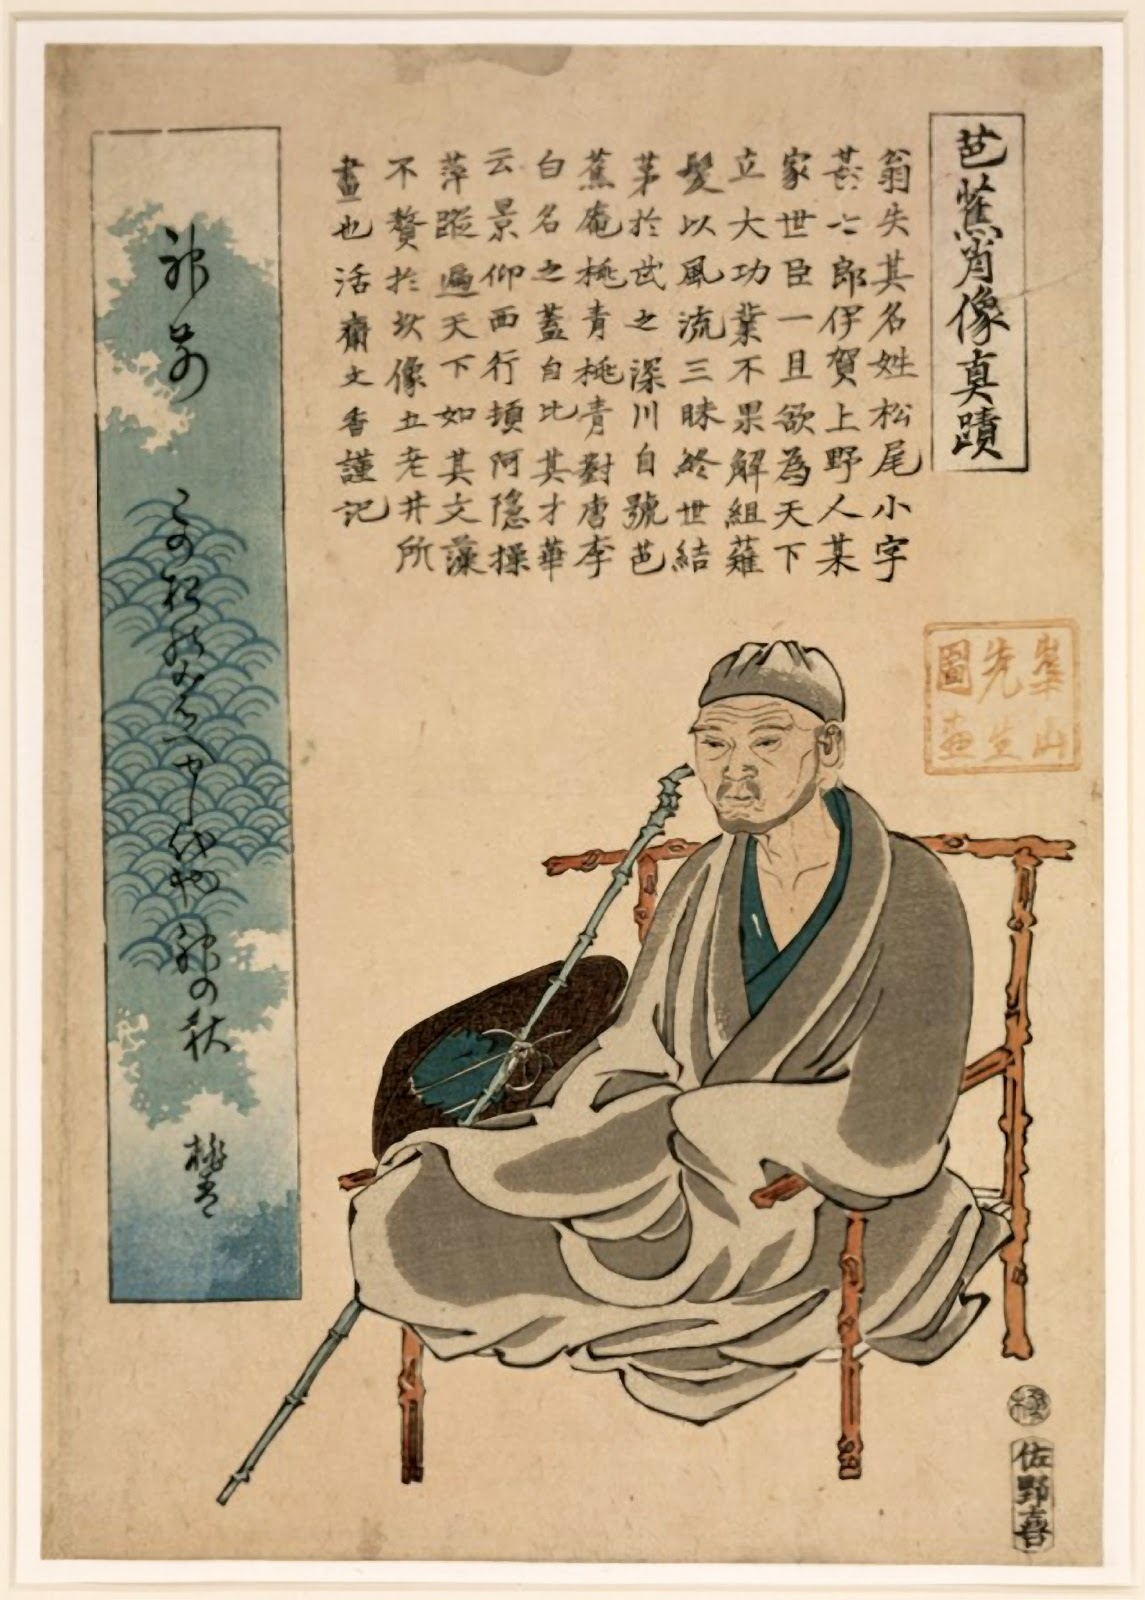 芭蕉肖像真蹟
翁失其名姓松尾小字
甚七郎伊賀上野人某
家世臣一旦欲為天下
立大功業不果解組薙
髪以風流三昧終世結
茅於武之深川自號芭
蕉庵桃青桃青對唐李
白名之蓋自比其才華
云景仰西行頓阿隠操
萍蹤遍天下如其文藻
不贅於此像五老井所
畫也活齋文香謹記
神前
この松のみばえせし代や神の秋
桃青
崋山
先生
圖画
極
佐野喜